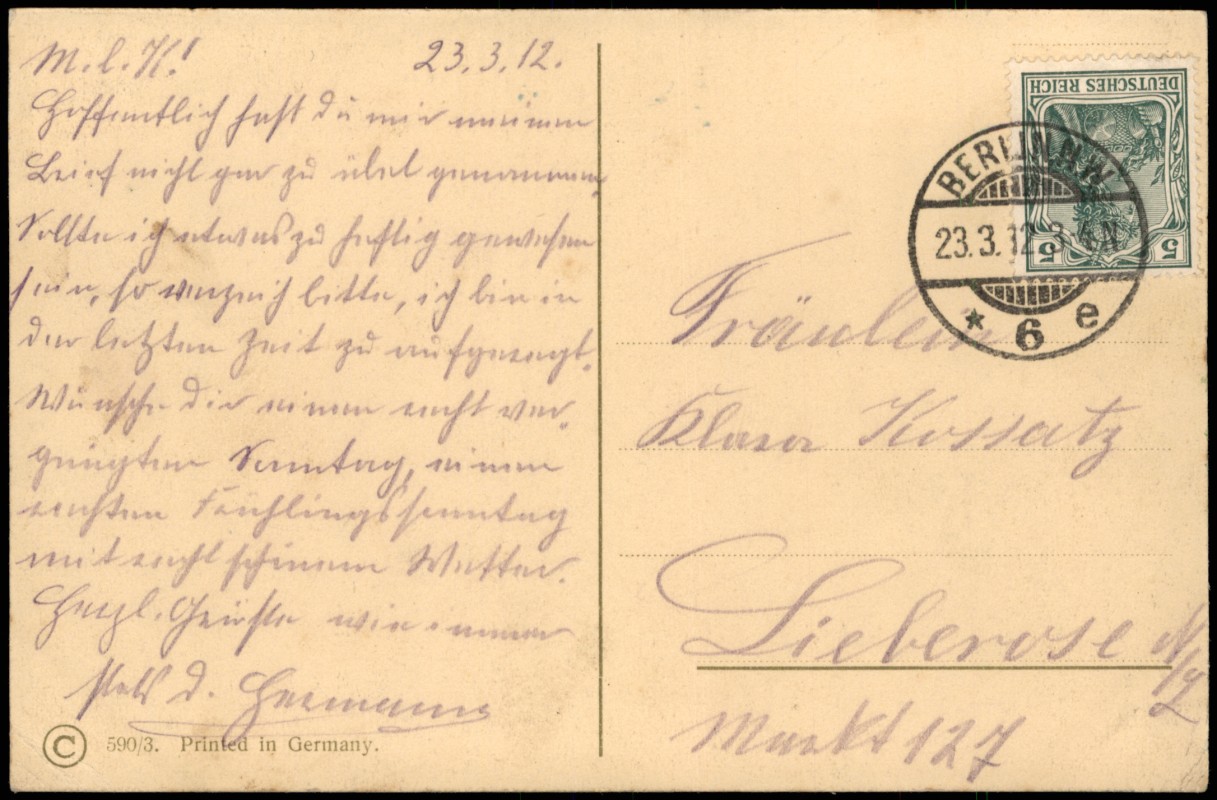 M. l. K!
23.3.12.
Hoffentlich hast du mir meinen
Brief nicht gar zu übel genommen.
Sollte ich etwas zu heftig gewesen
sein, so verzeih bitte, ich bin in
der letzten Zeit zu aufgeregt.
Wünsche dir einen recht ver-
gnügten Sonntag, einen
rechten Frühlingssonntag
mit recht schönem Wetter.
Herzl. Grüße wie immer
stets d. Hermann
© 590/3. Printed in Germany.
DEUTSCHES REICH
5 5
BERLIN N.W.
23.3.12. N
* 6 e
Fräulein
Klara Kossatz
Lieberose N/L
Markt 127